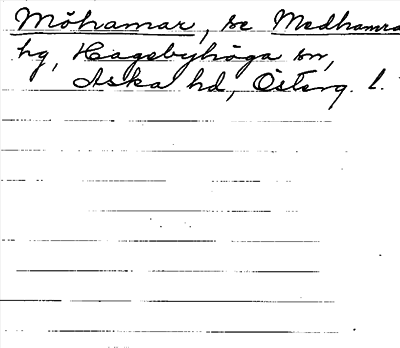 Möhamar, se Medhamra
hg, Hagebyhöga sn,
Aska hd, Österg. l.